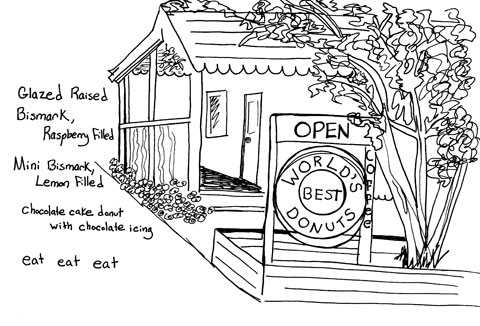 Glazed Raised
Bismark,
Raspberry Filled
Mini Bismark,
Lemon Filled
Chocolate cake donut
with chocolate icing
eat eat eat
OPEN
WORLD'S
BEST
DONUTS
Coffee